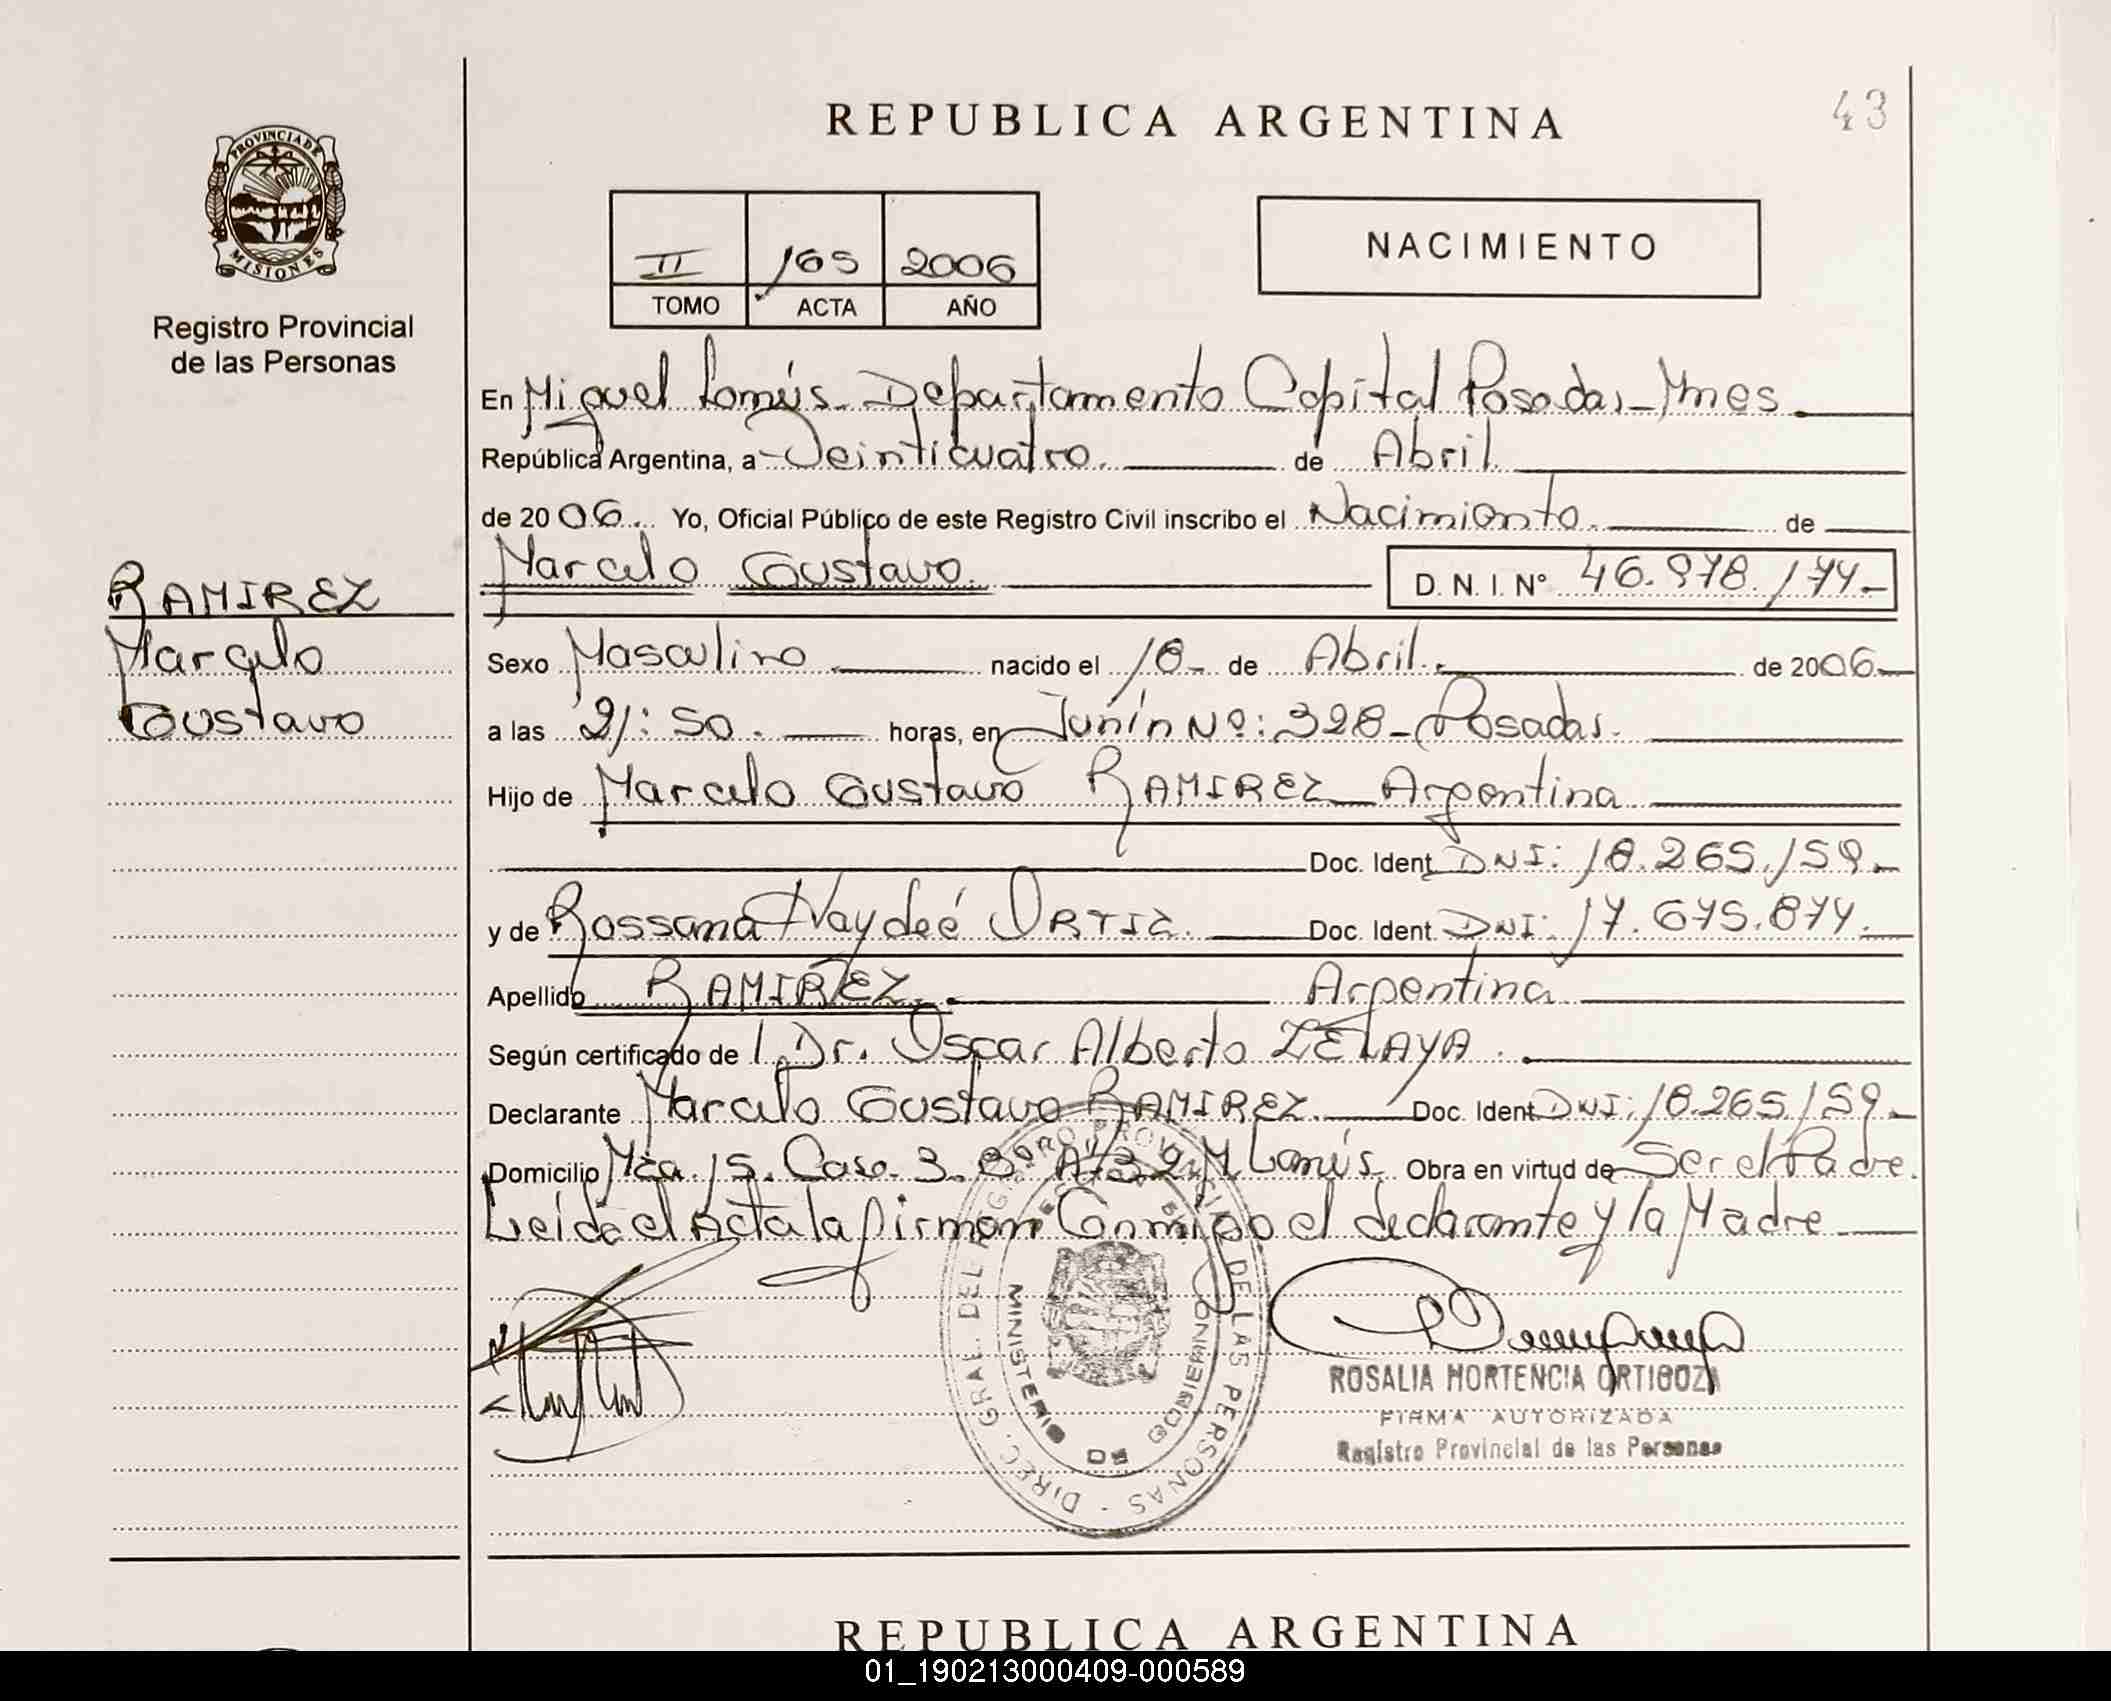 REPUBLICA ARGENTINA
43
PROVINCIA DE MISIONES
Registro Provincial
de las Personas
II 165 2006
TOMO ACTA AÑO
NACIMIENTO
En Miguel Lanús - Departamento Capital Posadas - Mnes
República Argentina, a Veinticuatro. de Abril
de 2006. Yo, Oficial Público de este Registro Civil inscribo el Nacimiento. de
Marcelo Gustavo. D. N. I. Nº 46.978.174.-
RAMIREZ
Marcelo
Gustavo
Sexo Masculino nacido el 18- de Abril. de 2006.-
a las 21:50. horas, en Junín Nº: 328 - Posadas.
Hijo de Marcelo Gustavo RAMIREZ Argentina
Doc. Ident. DNI: 18.265.159.-
y de Rossana Haydeé ORTIZ. Doc. Ident. DNI: 17.675.874.
Apellido RAMIREZ. Argentina
Según certificado de Dr. Oscar Alberto ZELAYA.
Declarante Marcelo Gustavo RAMIREZ. Doc. Ident. DNI: 18.265.159-
Domicilio Mza. 15. Casa. 3. Bº A-3-2 M. Lanús. Obra en virtud de Ser el Padre.
Leída el Acta la firman Conmigo el declarante y la Madre
DIREC. GRAL. DEL REGISTRO PROVINCIAL DE LAS PERSONAS
MINISTERIO DE GOBIERNO
ROSALIA HORTENCIA ORTIGOZA
FIRMA AUTORIZADA
Registro Provincial de las Personas
REPUBLICA ARGENTINA
01_190213000409-000589